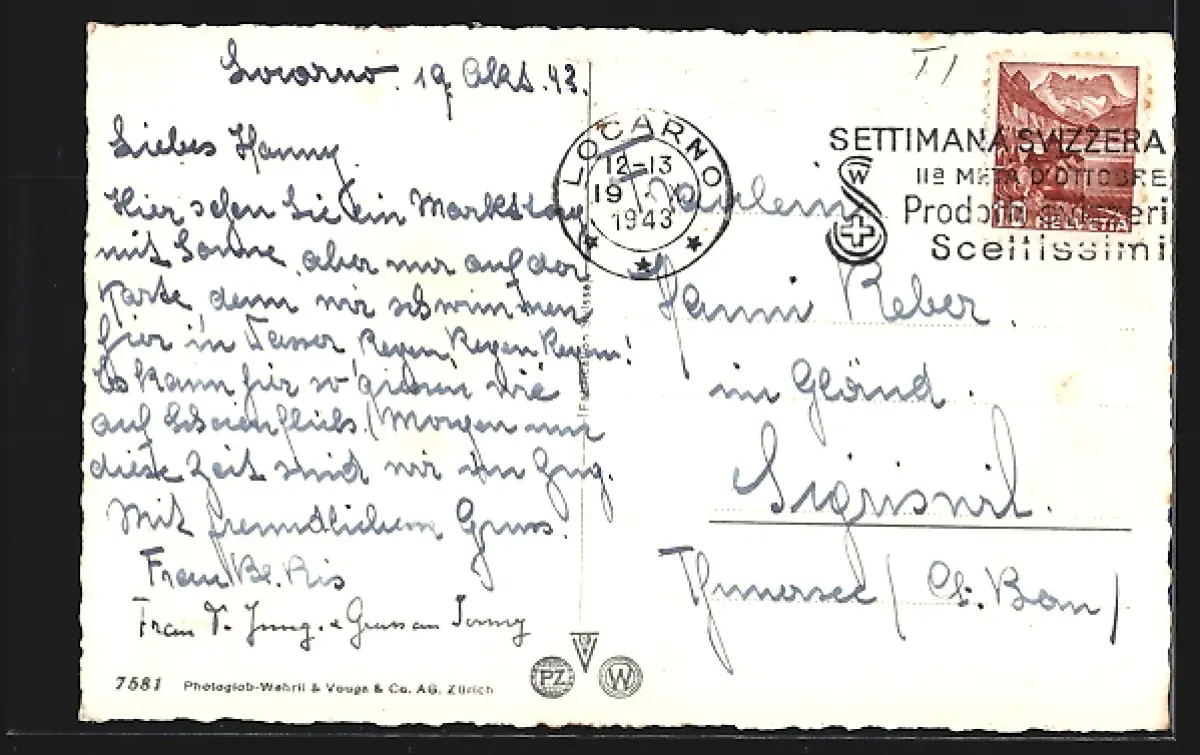 Locarno. 19. Okt. 43.
Liebes Hanny.
Hier sehen Sie ein Markttag
mit Sonne, aber nur auf der
Karte, denn wir schwimmen
hier in Wasser, Regen, Regen Regen!
Es kann hier so giessen wie
auf
diese Zeit sind wir im Zug.
Mit freundlichem Gruss.
Frau Bl. Ris
Frau Jung.
7581 Photoglob-Wehrli & Vouga & Co. AG. Zürich
PZ W
LOCARNO
12-13
19 X
1943
T
SETTIMANA SVIZZERA
IIª META D'OTTOBRE
Prodotti svizzeri
Sceltissimi
HELVETIA
Fräulein
Hanni Reber.
im Gländ.
Sigriswil.
Thunersee (Ct. Bern)